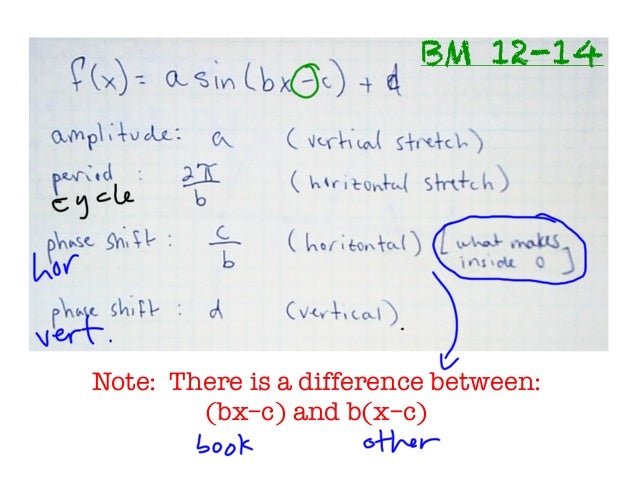 BM 12-14
f(x) = a sin(bx-c) + d
amplitude: a (vertical stretch)
period : 2π/b (horizontal stretch)
cycle
phase shift : c/b (horizontal) [what makes inside 0]
hor
phase shift : d (vertical).
vert.
Note: There is a difference between:
(bx-c) and b(x-c)
book other